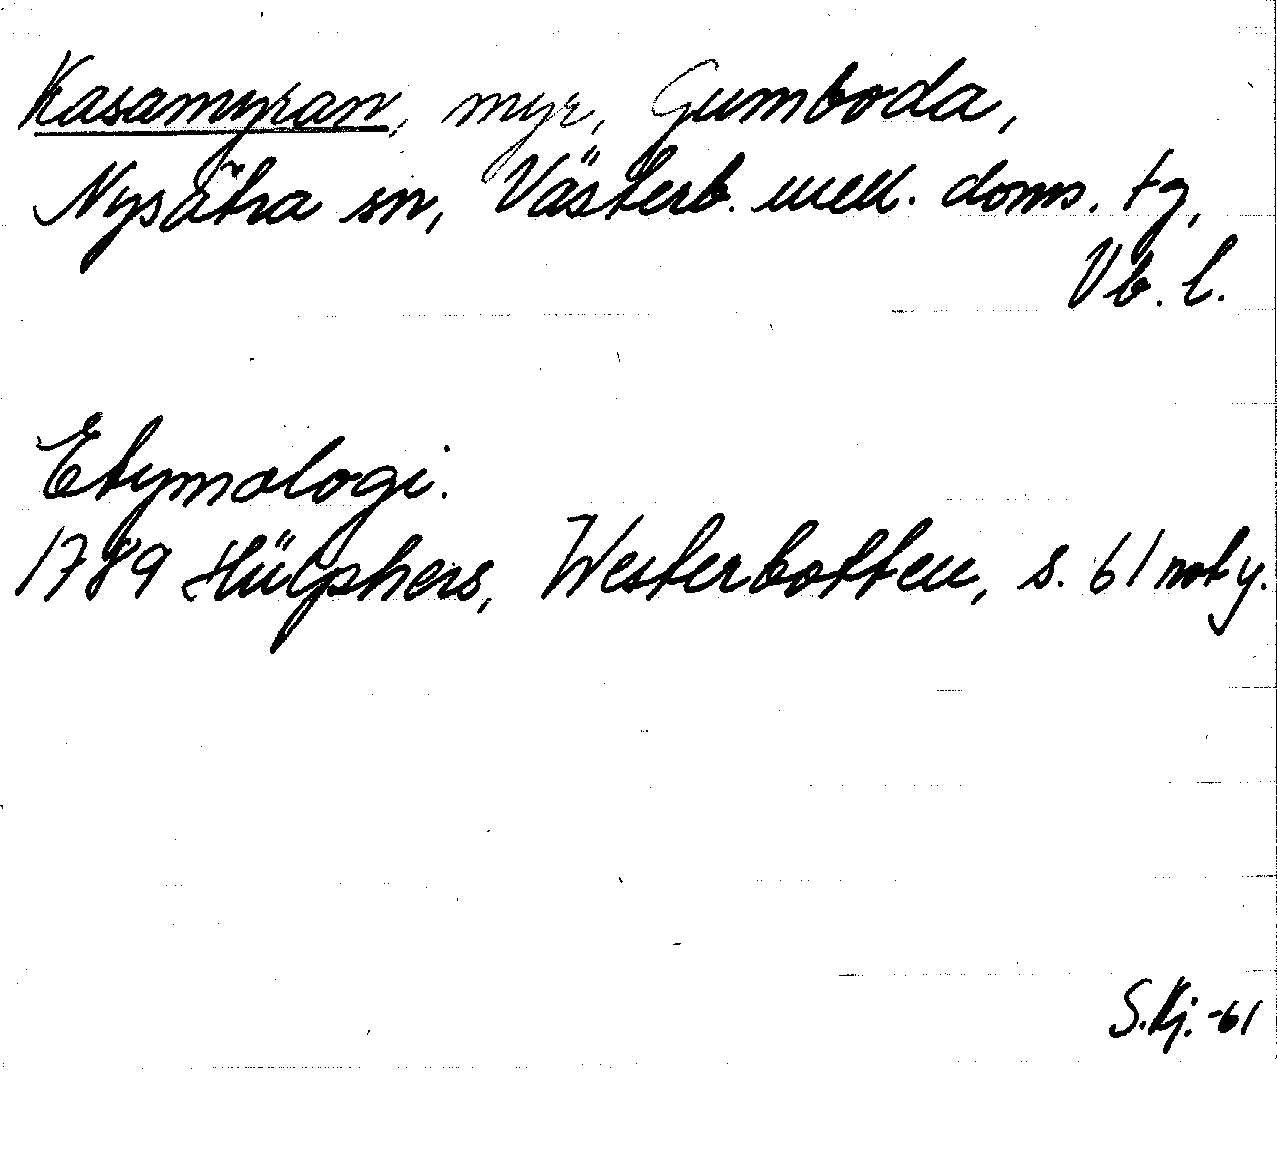 Kasamyran, myr, Gumboda,
Nysätra sn, Västerb. mell. doms. tg,
Vb. l.
Etymologi.
1789 Hülphers, Westerbotten, s. 61 not y.
S.Kj. -61